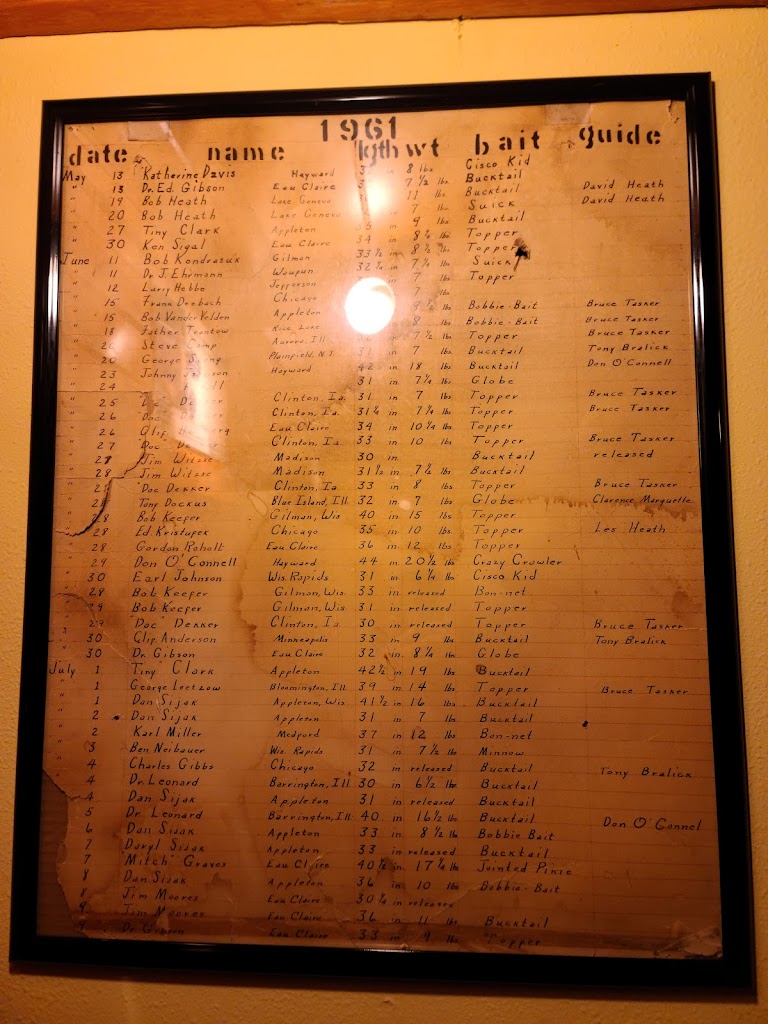 1961
date name lgth wt bait guide
May 13 Katherine Davis Hayward in 8 lbs Cisco Kid
" 13 Dr. Ed. Gibson Eau Claire 7 1/2 lbs Bucktail
" 19 Bob Heath Lake Geneva 11 lbs Bucktail David Heath
" 20 Bob Heath Lake Geneva 7 lbs Suick David Heath
" 27 Tiny Clark Appleton in 9 lbs Bucktail
" 30 Ken Sigal Eau Claire 34 in lbs Topper
June 11 Bob Kondrasuk Gilman 33 1/2 in 8 1/2 lbs Topper
" 11 Dr. J. Ehrmann Waupun 32 in lbs Suick
" 12 Larry Hebbe Jefferson in 7 lbs Topper
" 15 Frank Drebach Chicago lbs
" 15 Bob VanderVelden Appleton lbs Bobbie-Bait Bruce Tasker
" Father Trantow Rice Lake 8 lbs Bobbie-Bait Bruce Tasker
" Steve Aurora, Ill in 7 1/2 lbs Topper Bruce Tasker
" 20 George Plainfield, N.J. 31 in 7 lbs Bucktail Tony Bralick
" 23 Johnny Hayward 42 in 18 lbs Bucktail Don O'Connell
" 24 31 in 7 1/4 lbs Globe
" 25 "Doc" Clinton, Ia. 31 in 7 lbs Topper Bruce Tasker
" 26 "Doc" Clinton, Ia. 31 1/4 in 7 1/4 lbs Topper Bruce Tasker
" 26 Glif Eau Claire 34 in 10 1/4 lbs Topper
" 27 "Doc" Clinton, Ia. 33 in 10 lbs Topper Bruce Tasker
" 28 Jim Witzke Madison 30 in Bucktail released
" 28 Jim Witzke Madison 31 1/2 in 7 1/2 lbs Bucktail
" "Doc" Dekker Clinton, Ia. 33 in 8 lbs Topper Bruce Tasker
" Tony Dockus Blue Island, Ill 32 in 7 lbs Globe Clarence Marquette
" 28 Bob Keefer Gilman, Wis 40 in 15 lbs Topper
" 28 Ed. Kristupek Chicago 35 in 10 lbs Topper Les Heath
" 28 Gordon Roholt Eau Claire 36 in 12 lbs Topper
" 29 Don O'Connell Hayward 44 in 20 1/2 lbs Crazy Crawler
" 30 Earl Johnson Wis. Rapids 31 in 6 1/4 lbs Cisco Kid
" 28 Bob Keefer Gilman, Wis. 33 in released Bon-net
" 29 Bob Keefer Gilman, Wis 31 in released Topper
" 29 "Doc" Dekker Clinton, Ia. 30 in released Topper Bruce Tasker
" 30 Glip Anderson Minneapolis 33 in 9 lbs Bucktail Tony Bralick
" 30 Dr. Gibson Eau Claire 32 in 8 1/4 lbs Globe
July 1 "Tiny" Clark Appleton 42 1/2 in 19 lbs Bucktail
" 1 George Leetzow Bloomington, Ill 39 in 14 lbs Topper Bruce Tasker
" 1 Dan Sijak Appleton, Wis 41 1/2 in 16 lbs Bucktail
" 2 Dan Sijak Appleton 31 in 7 lbs Bucktail
" 2 Karl Miller Medford 37 in 12 lbs Bon-net
" 3 Ben Neibauer Wis. Rapids 31 in 7 1/2 lbs Minnow
" 4 Charles Gibbs Chicago 32 in released Bucktail Tony Bralick
" 4 Dr. Leonard Barrington, Ill 30 in 6 1/2 lbs Bucktail
" 4 Dan Sijak Appleton 31 in released Bucktail
" 5 Dr. Leonard Barrington, Ill. 40 in 16 1/2 lbs Bucktail Don O'Connel
" 6 Dan Sijak Appleton 33 in 8 1/2 lbs Bobbie Bait
" 7 Daryl Sijak Appleton 33 in released Bucktail
" 7 "Mitch" Graves Eau Claire 40 1/2 in 17 1/4 lbs Jointed Pikie
" 8 Dan Sijak Appleton 36 in 10 lbs Bobbie-Bait
" 8 Jim Moores Eau Claire 30 1/4 in released
" 9 Jim Moores Eau Claire 36 in 11 lbs Bucktail
" 9 Dr. Gibson Eau Claire 33 in 9 lbs Topper